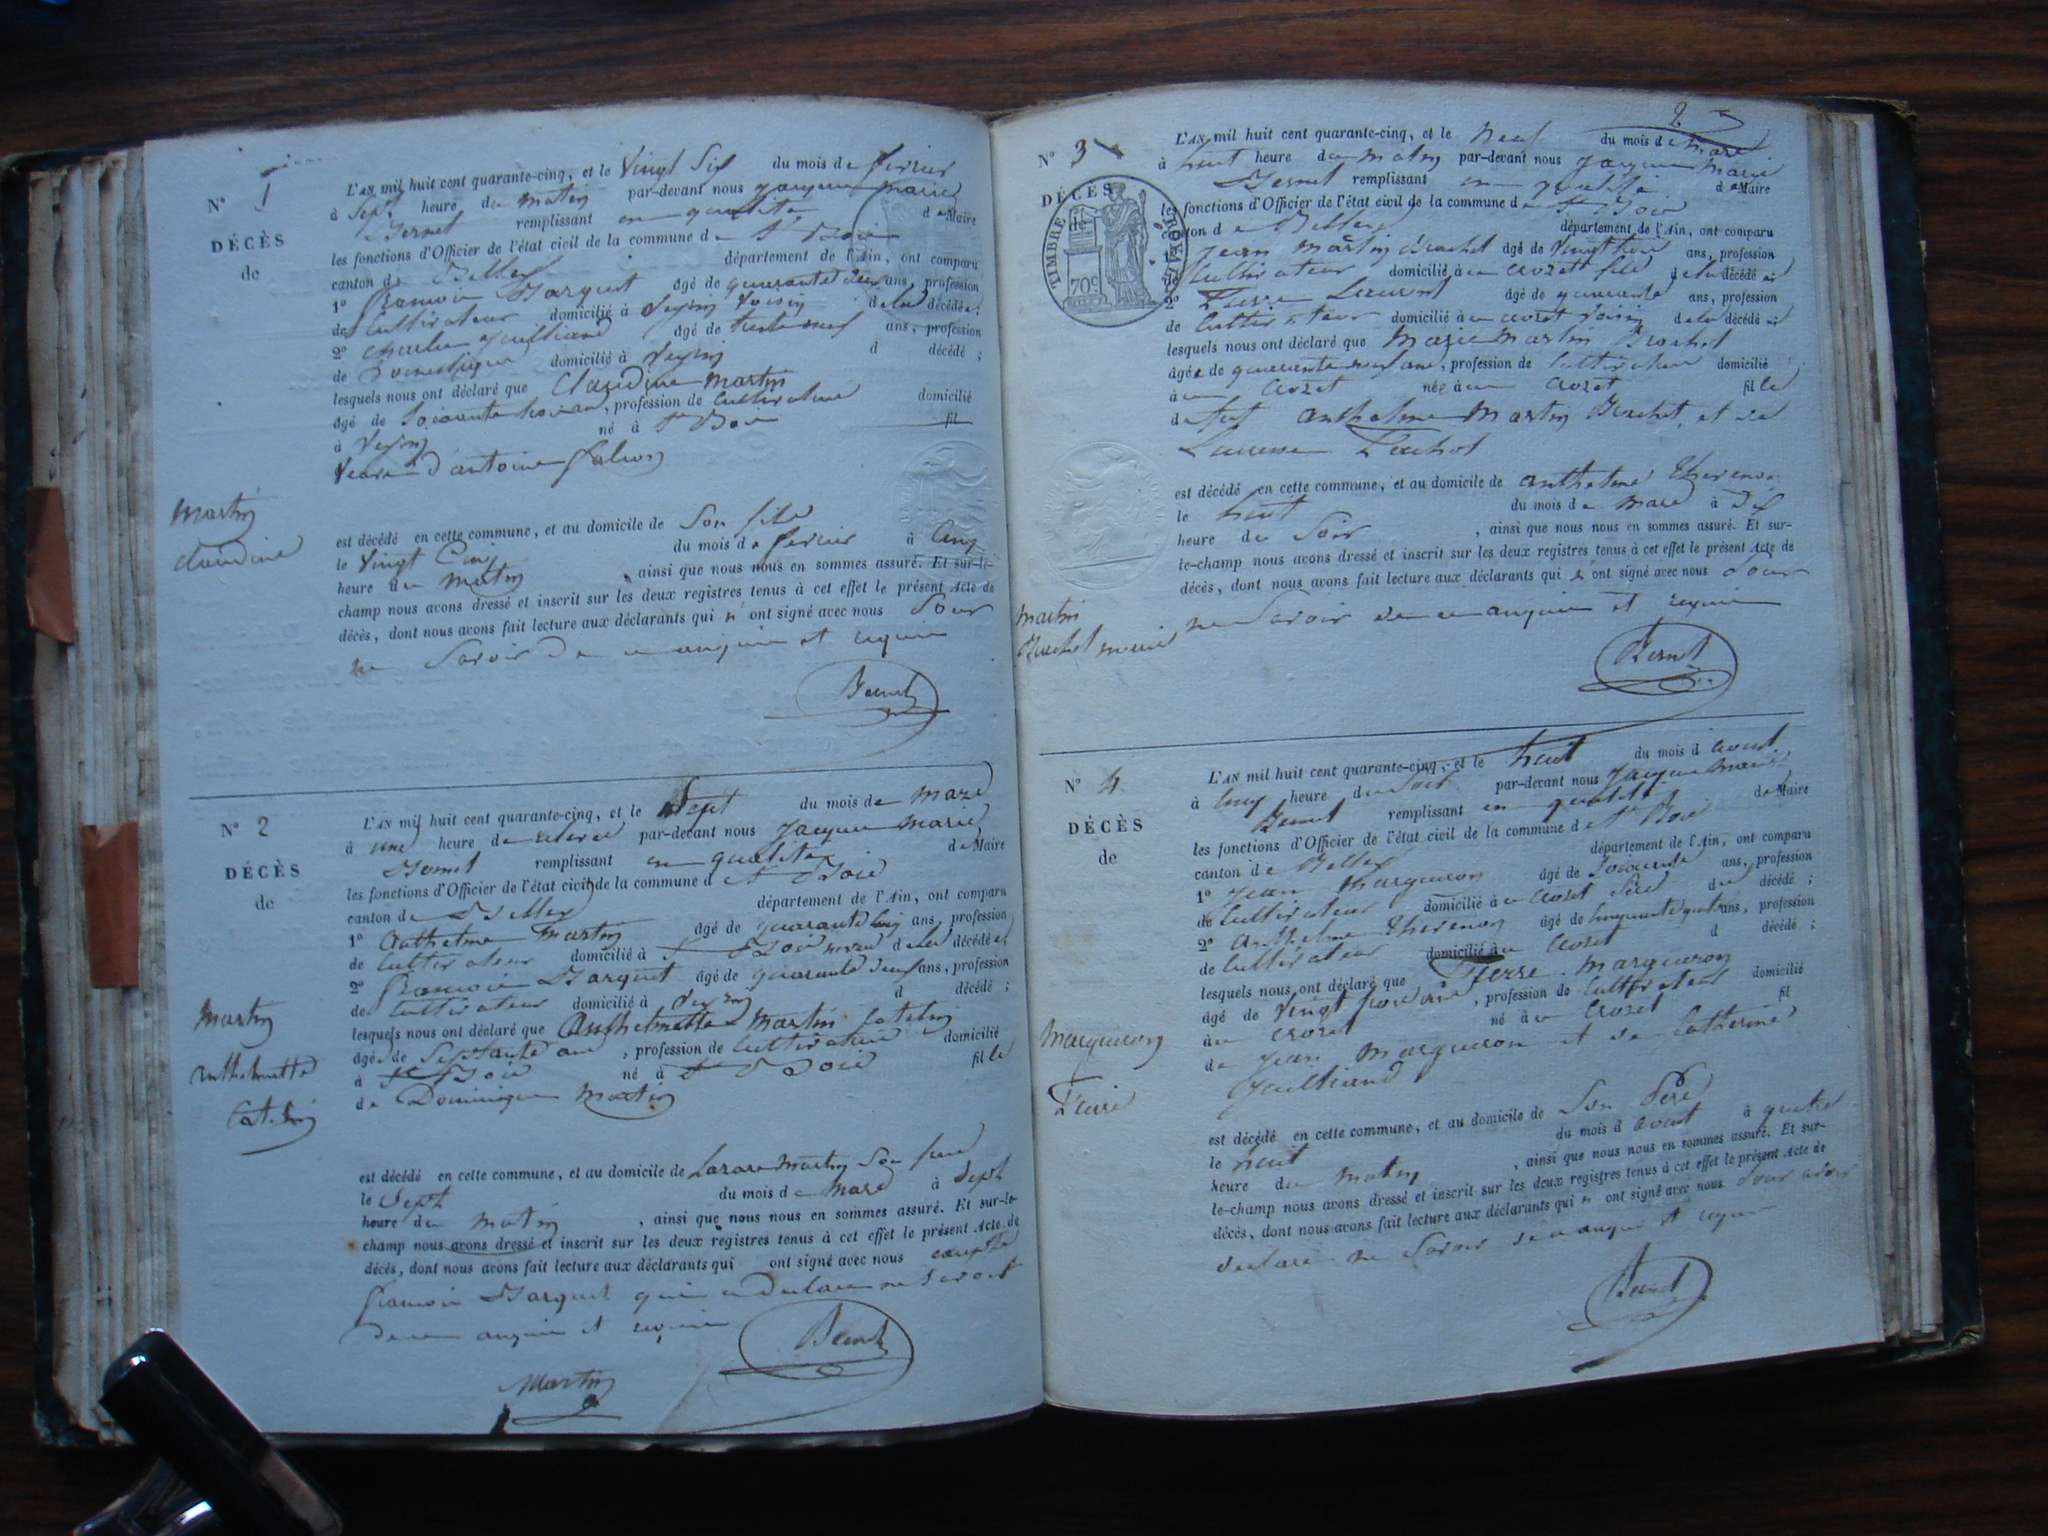 N° 1
DÉCÈS
de
Martin
claudine
L'AN mil huit cent quarante-cinq, et le vingt Six du mois de fevrier
à Sept heure du matin par-devant nous jacque marie
Bernet remplissant en qualité de Maire
les fonctions d'Officier de l'état civil de la commune de St Bois
canton de Belley département de l'Ain, ont comparu
1° françois âgé de quarante deux ans, profession
de Cultivateur domicilié à Veyrin voisin de la décédée;
2° Charles Juilliand âgé de trente neuf ans, profession
de Domestique domicilié à Veyrin d décédé;
lesquels nous ont déclaré que Claudine Martin
âgé de Soixante ans, profession de Cultivateur domicilié
à Veyrin né à St Bois fil
Veuve d'antoine
est décédé en cette commune, et au domicile de Son fils
le Vingt Cinq du mois de fevrier à Cinq
heure du matin, ainsi que nous nous en sommes assuré. Et sur-le-
champ nous avons dressé et inscrit sur les deux registres tenus à cet effet le présent Acte de
décès, dont nous avons fait lecture aux déclarants qui n'ont signé avec nous pour
ne Savoir de ce enquis et requis
Bernet
N° 2
DÉCÈS
de
Martin
anthelmette
Catelin
L'AN mil huit cent quarante-cinq, et le Sept du mois de mars
à une heure de par-devant nous Jacque Marie
Bernet remplissant en qualité de Maire
les fonctions d'Officier de l'état civil de la commune d St Bois
canton de Belley département de l'Ain, ont comparu
1° Anthelme Martin âgé de quarante Cinq ans, profession
de Cultivateur domicilié à St Bois neveu de la décédée,
2° françois âgé de quarante deux ans, profession
de Cultivateur domicilié à Veyrin d décédé;
lesquels nous ont déclaré que Anthelmette Martin Catelin
âgé de Septante ans, profession de Cultivateur domicilié
à St Bois né à St Bois fille
de Dominique Martin
est décédé en cette commune, et au domicile de Lazare Martin Son frere
le Sept du mois de Mars à Sept
heure du matin, ainsi que nous nous en sommes assuré. Et sur-le-
champ nous avons dressé et inscrit sur les deux registres tenus à cet effet le présent Acte de
décès, dont nous avons fait lecture aux déclarants qui ont signé avec nous excepté
françois qui a declaré ne Savoir
de ce enquis et requis
Bernet
Martin
2
N° 3
DÉCÈS
de
TIMBRE ROYAL
70c
martin
Brochet marie
L'AN mil huit cent quarante-cinq, et le Neuf du mois de mars
à huit heure du matin par-devant nous Jacque Marie
Bernet remplissant en qualité de Maire
les fonctions d'Officier de l'état civil de la commune de St Bois
canton de Belley département de l'Ain, ont comparu
1° Jean Martin Brochet âgé de Vingt ans, profession
de Cultivateur domicilié à au crozet fils de la décédée
2° Pierre Laurent âgé de quarante ans, profession
de Cultivateur domicilié à au crozet voisin de la décédée
lesquels nous ont déclaré que Marie Martin Brochet
âgée de quarante neuf ans, profession de Cultivateur domicilié
à au Crozet née à au Crozet fille
de feu anthelme Martin Brochet, et de
est décédé en cette commune, et au domicile de anthelme thevenon
le huit du mois de mars à dix
heure du Soir, ainsi que nous nous en sommes assuré. Et sur-
le-champ nous avons dressé et inscrit sur les deux registres tenus à cet effet le présent Acte de
décès, dont nous avons fait lecture aux déclarants qui n'ont signé avec nous pour
ne Savoir de ce enquis et requis
Bernet
N° 4
DÉCÈS
de
Marqueron
Pierre
L'AN mil huit cent quarante-cinq, et le huit du mois d aout
à Cinq heure du Soir par-devant nous Jacque Marie
Bernet remplissant en qualité de Maire
les fonctions d'Officier de l'état civil de la commune d St Bois
canton de Belley département de l'Ain, ont comparu
1° Jean Marqueron âgé de Soixante ans, profession
de Cultivateur domicilié à au Crozet Père du décédé;
2° Anthelme thevenon âgé de Cinquante quatre ans, profession
de Cultivateur domicilié à au Crozet d décédé;
lesquels nous ont déclaré que Pierre Marqueron
âgé de Vingt ans, profession de Cultivateur domicilié
à au crozet né à au Crozet fil
de Jean Marqueron et de Catherine
Juilliand
est décédé en cette commune, et au domicile de Son Père
le huit du mois d aout à quatre
heure du Matin, ainsi que nous nous en sommes assuré. Et sur-
le-champ nous avons dressé et inscrit sur les deux registres tenus à cet effet le présent Acte de
décès, dont nous avons fait lecture aux déclarants qui n'ont signé avec nous pour avoir
declaré ne Savoir de ce enquis et requis
Bernet